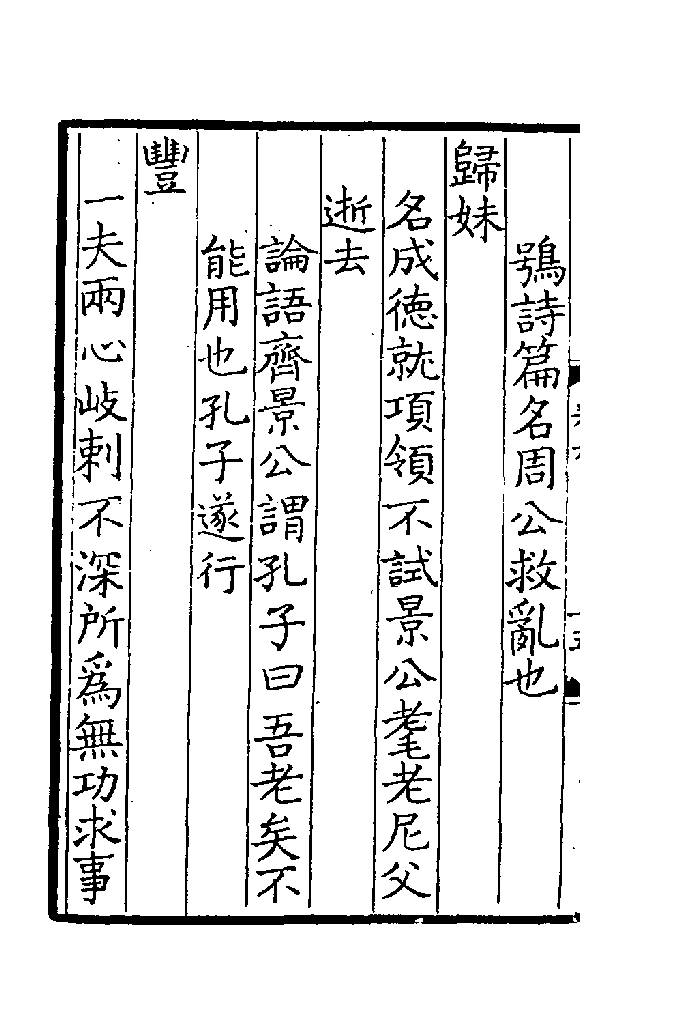 鴞詩篇名周公救亂也
歸妹
名成德就項領不試景公耄老尼父
逝去
論語齊景公謂孔子曰吾老矣不
能用也孔子遂行
豐
一夫兩心岐刺不深所爲無功求事